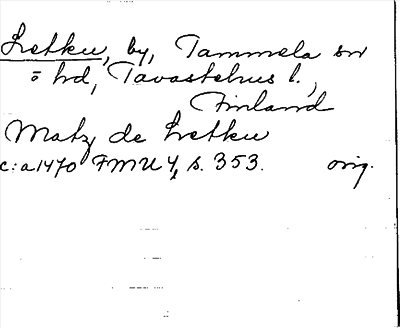 Letku, by, Tammela sn
o hd, Tavastehus l.,
Finland
Matz de Letku
c:a 1470 FMU 4, s. 353. orig.